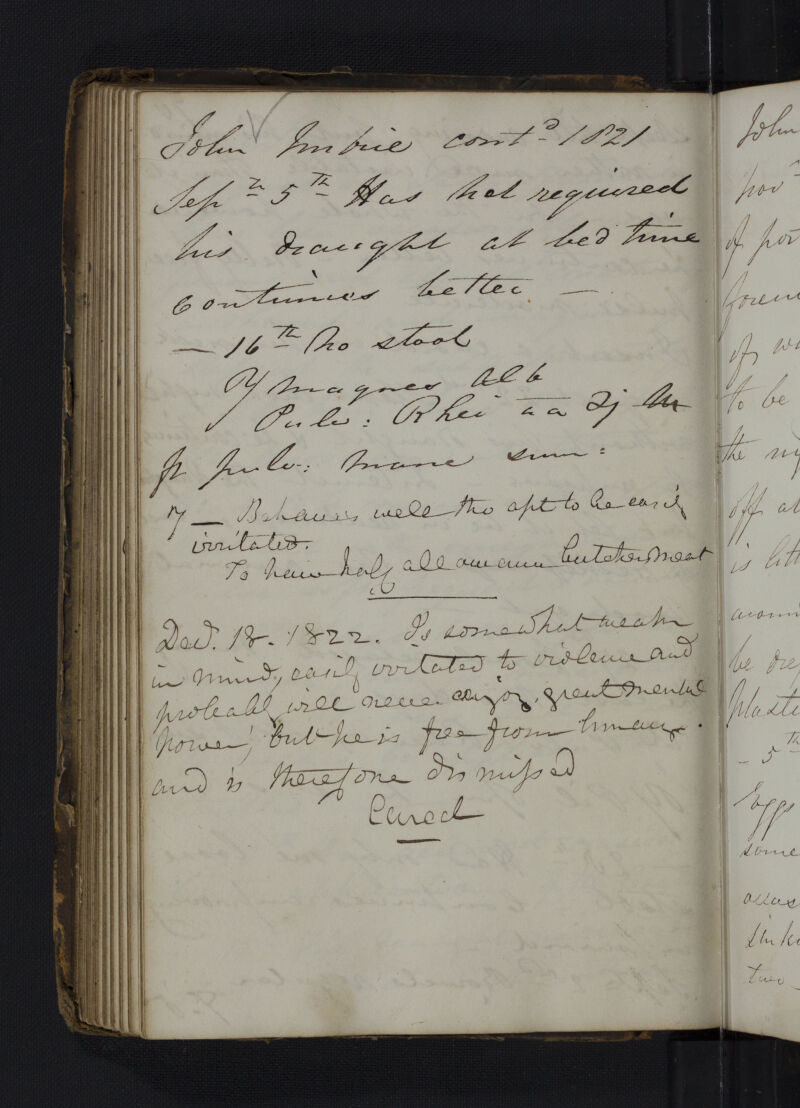 John Imbrie contd 1821
Sepr 5th Has not required
his draught at bed time
continues better —
— 16th No stool
℞ Magnes Alb
Pulv: Rhei aa ʒj
ft pulv: mane sum:
7 — Behaves well tho apt to be easily
irritated.
To have half allowance butcher meat
Decr. 18. 1822. Is somewhat weak
in mind, easily irritated to violence and
probably will never enjoy great mental
power, but he is free from lunacy.
and is therefore dismissed
Cured
John
Novr
of
of
to be
the
off at
is
be
- 5th
Eggs
some
two